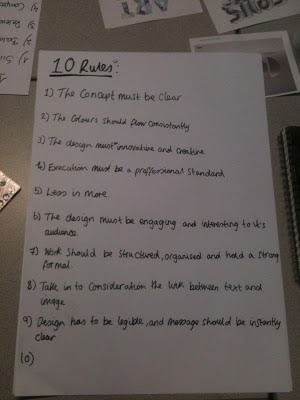 10 Rules":
1) The Concept must be clear
2) The Colours should flow consistantly
3) The design must innovative and creative
4) Execution must be a proffesional standard
5) Less in more.
6) The design must be engaging and interesting to it's
audience.
7) Work should be structured, organised and hold a strong
format.
8) Take in to consideration the link between text and
image
9) Design has to be legible, and message should be instantly
clear
10)
ART